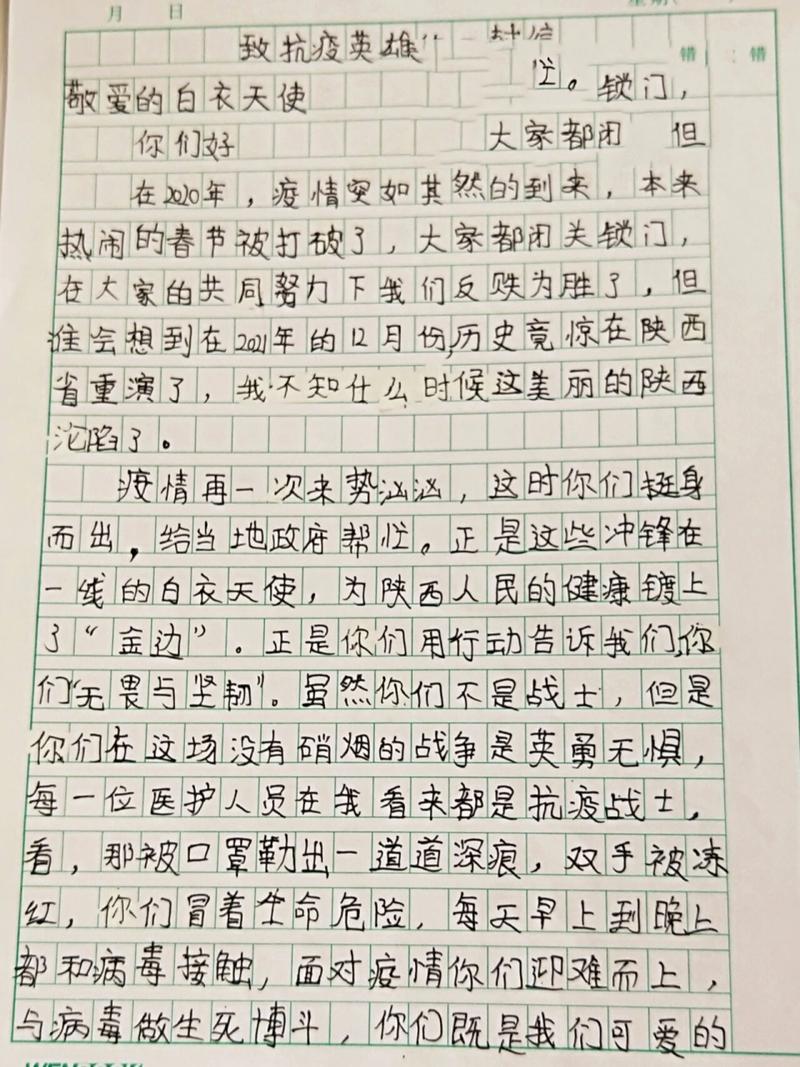 月 日
致抗疫英雄"一封信
忙。锁门，
错 错
敬爱的白衣天使
你们好 大家都闭 但
在2020年，疫情突如其然的到来，本来
热闹的春节被打破了，大家都闭关锁门，
在大家的共同努力下我们反败为胜了，但
谁会想到在2021年的12月份,历史竟惊在陕西
省重演了，我不知什么时候这美丽的陕西
沦陷了。
疫情再一次来势汹汹，这时你们挺身
而出，给当地政府帮忙。正是这些冲锋在
一线的白衣天使，为陕西人民的健康镀上
了“金边”。正是你们用行动告诉我们,你
们“无畏与坚韧”。虽然你们不是战士，但是
你们在这场没有硝烟的战争是英勇无惧，
每一位医护人员在我看来都是抗疫战士，
看，那被口罩勒出一道道深痕，双手被冻
红，你们冒着生命危险，每天早上到晚上
都和病毒接触，面对疫情你们迎难而上，
与病毒做生死博斗，你们既是我们可爱的